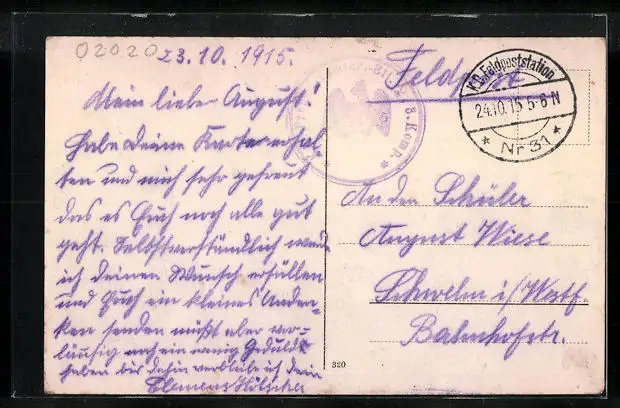 02020
23.10.1915.
Mein lieber August!
Habe Deine Karte erhal-
ten und mich sehr gefreut
das es Euch noch alle gut
geht. Selbstverständlich werde
ich deinen Wunsch erfüllen
und Euch ein kleines Anden-
ken senden mußt aber vor-
läufig noch ein wenig Geduld
haben bis dahin verbleibe ich dein
Clemens Hölscher
Feldpost
8. Komp.
K.D. Feldpoststation
24.10.15 5-6 N
* Nr 31 *
An den Schüler
August Wiese
Schwelm i/Westf.
Bahnhofstr.
320